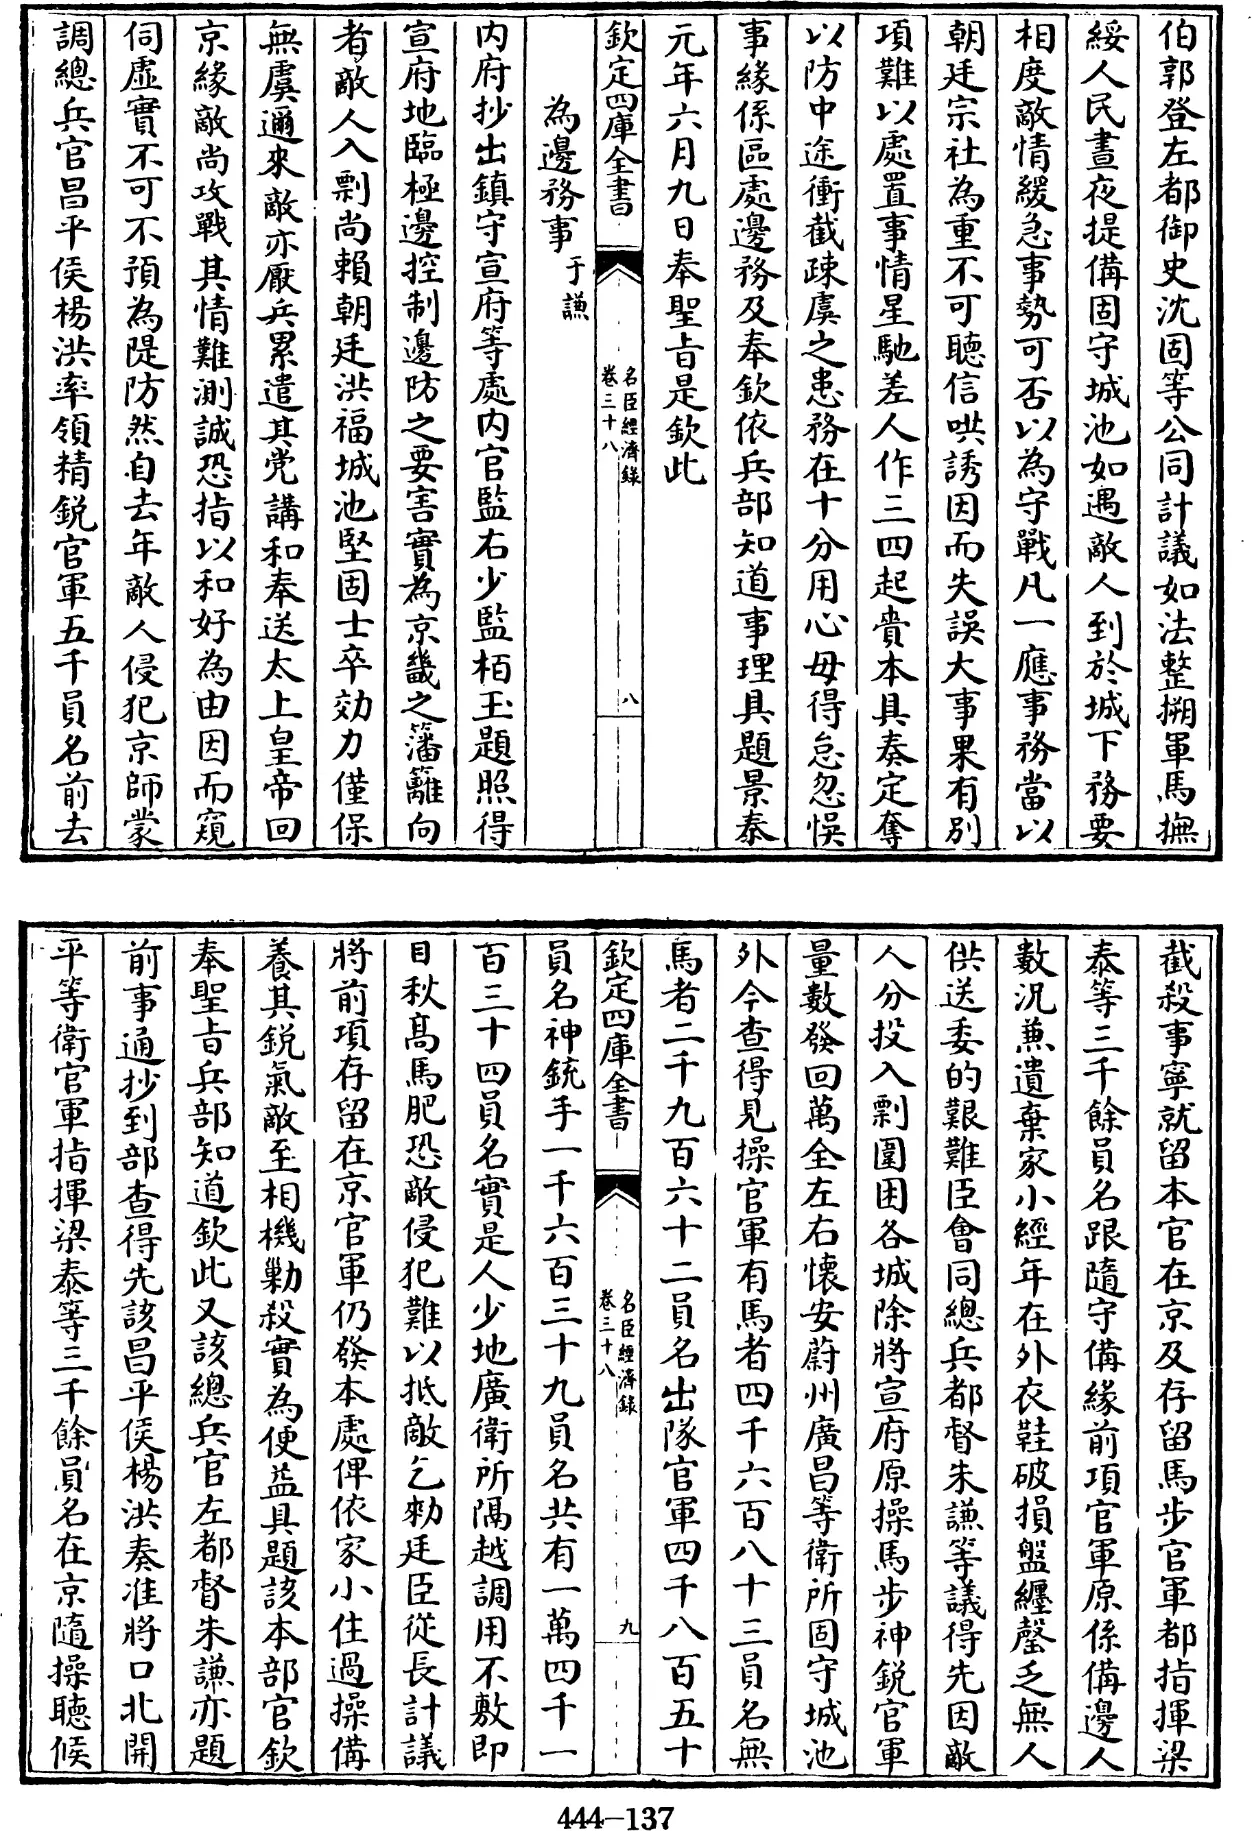 伯郭登左都御史沈固等公同計議如法整搠軍馬撫
綏人民晝夜提備固守城池如遇敵人到於城下務要
相度敵情緩急事勢可否以為守戰凡一應事務當以
朝廷宗社為重不可聽信哄誘因而失誤大事果有別
項難以處置事情星馳差人作三四起賫本具奏定奪
以防中途衝截疎虞之患務在十分用心毋得怠忽悞
事緣係區處邊務及奉欽依兵部知道事理具題景泰
元年六月九日奉聖旨是欽此
欽定四庫全書
名臣經濟錄
卷三十八
八
為邊務事 于謙
内府抄出鎮守宣府等處内官監右少監栢玉題照得
宣府地臨極邊控制邊防之要害實為京畿之藩籬向
者敵人入剽尚賴朝廷洪福城池堅固士卒効力僅保
無虞邇來敵亦厭兵累遣其党講和奉送太上皇帝回
京緣敵尚攻戰其情難測誠恐指以和好為由因而窺
伺虛實不可不預為隄防然自去年敵人侵犯京師蒙
調總兵官昌平侯楊洪率領精銳官軍五千員名前去
截殺事寧就留本官在京及存留馬步官軍都指揮梁
泰等三千餘員名跟隨守備緣前項官軍原係備邊人
數況兼遺棄家小經年在外衣鞋破損盤纏罄乏無人
供送委的艱難臣會同總兵都督朱謙等議得先因敵
人分投入剽圍困各城除將宣府原操馬步神銳官軍
量數發回萬全左右懷安蔚州廣昌等衛所固守城池
外今查得見操官軍有馬者四千六百八十三員名無
馬者二千九百六十二員名出隊官軍四千八百五十
欽定四庫全書
名臣經濟錄
卷三十八
九
員名神銃手一千六百三十九員名共有一萬四千一
百三十四員名實是人少地廣衛所隔越調用不敷即
目秋髙馬肥恐敵侵犯難以抵敵乞勅廷臣從長計議
將前項存留在京官軍仍發本處俾依家小住過操備
養其銳氣敵至相機勦殺實為便益具題該本部官欽
奉聖旨兵部知道欽此又該總兵官左都督朱謙亦題
前事通抄到部查得先該昌平侯楊洪奏准將口北開
平等衛官軍指揮梁泰等三千餘員名在京隨操聽候
444-137